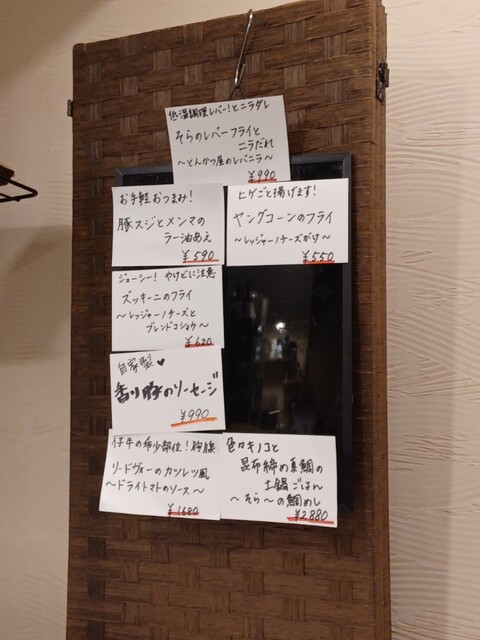 低温調理レバー!とニラダレ
そらのレバーフライと
ニラだれ
〜とんかつ屋のレバニラ〜
¥990
お手軽おつまみ!
豚スジとメンマの
ラー油あえ
¥590
ヒゲごと揚げます!
ヤングコーンのフライ
〜レッジャーノチーズがけ〜
¥550
ジューシー! やけどに注意
ズッキーニのフライ
〜レッジャーノチーズと
ブレンドコショウ〜
¥620
自家製♥
香り豚のソーセージ
¥990
仔牛の希少部位!胸腺
リードヴォーのカツレツ風
〜ドライトマトのソース〜
¥1680
色々キノコと
昆布締め真鯛の
土鍋ごはん
〜そら〜の鯛めし
¥2,880